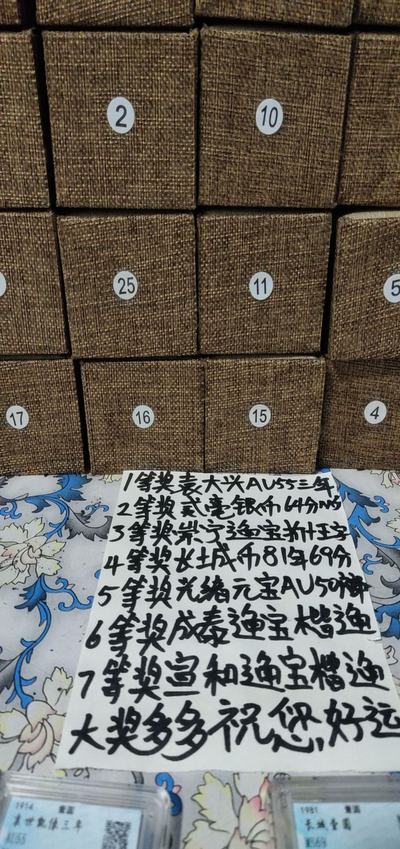 2
10
25
11
5
17
16
15
4
1等奖袁大头AU55三年
2等奖贰毫银币64分NGC
3等奖崇宁通宝折十
4等奖长城币81年69分
5等奖光绪元宝AU50
6等奖咸泰通宝楷通
7等奖宣和通宝楷通
大奖多多祝您,好运
1914 壹圆
袁世凯像三年
AU55
1981 壹圆
长城壹圆
MS69